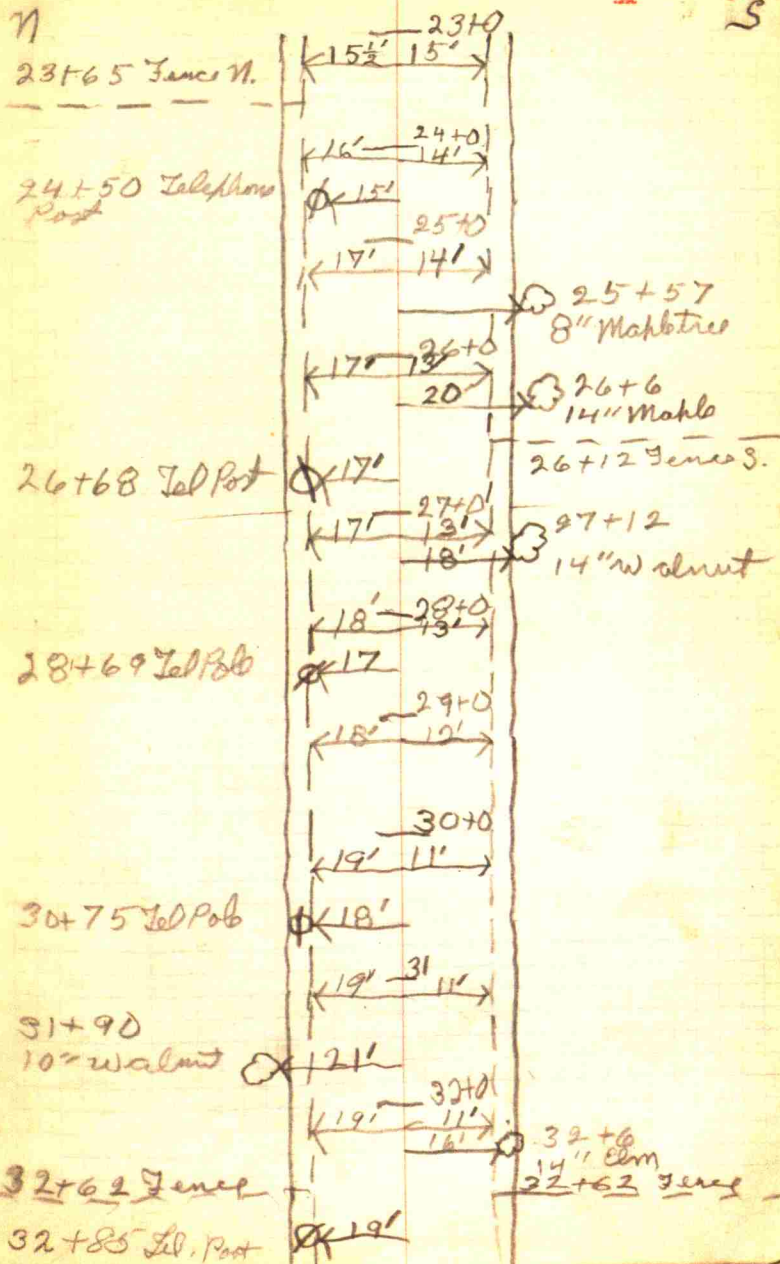 N S
23+0
15½' 15'
23+65 Fence N.
24+0
16' 14'
24+50 Telephone
Post
15'
25+0
17' 14'
25+57
8" Mapletree
26+0
17' 13'
20'
26+6
14" Maple
26+12 Fence S.
26+68 Tel Post
17'
27+0
17' 13'
27+12
18'
14" Walnut
28+0
18' 13'
28+69 Tel Pole
17
29+0
18' 12'
30+0
19' 11'
30+75 Tel Pole
18'
31
19' 11'
31+90
10" Walnut
21'
32+0
19' 11'
16'
32+6
14" Elm
32+62 Fence
32+62 Fence
32+85 Tel. Post
19'